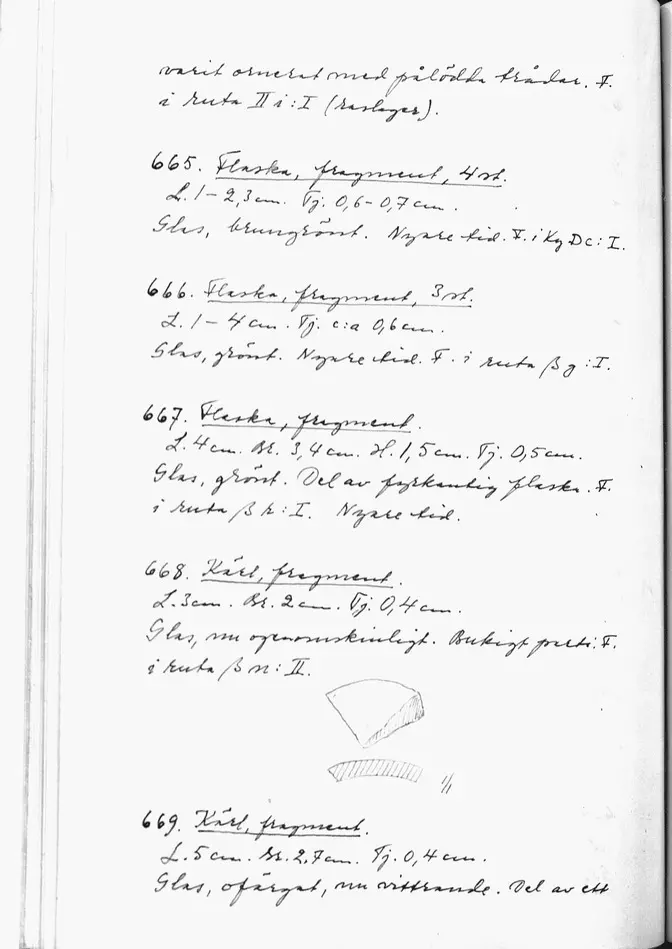 varit ornerat med pålödda trådar. F.
i ruta II i:I (raslager).
665. Flaska, fragment, 4 st.
L. 1 – 2,3 cm. Tj. 0,6 – 0,7 cm.
Glas, brungrönt. Nyare tid. F. i Kg Dc:I.
666. Flaska, fragment, 3 st.
L. 1 – 4 cm. Tj. c:a 0,6 cm.
Glas, grönt. Nyare tid. F. i ruta β g:I.
667. Flaska, fragment.
L. 4 cm. Br. 3,4 cm. H. 1,5 cm. Tj. 0,5 cm.
Glas, grönt. Del av fyrkantig flaska. F.
i ruta β k:I. Nyare tid.
668. Kärl, fragment.
L. 3 cm. Br. 2 cm. Tj. 0,4 cm.
Glas, nu ogenomskinligt. Bukigt parti. F.
i ruta β n:II.
1/1
669. Kärl, fragment.
L. 5 cm. Br. 2,7 cm. Tj. 0,4 cm.
Glas, ofärgat, nu vittrande. Del av ett